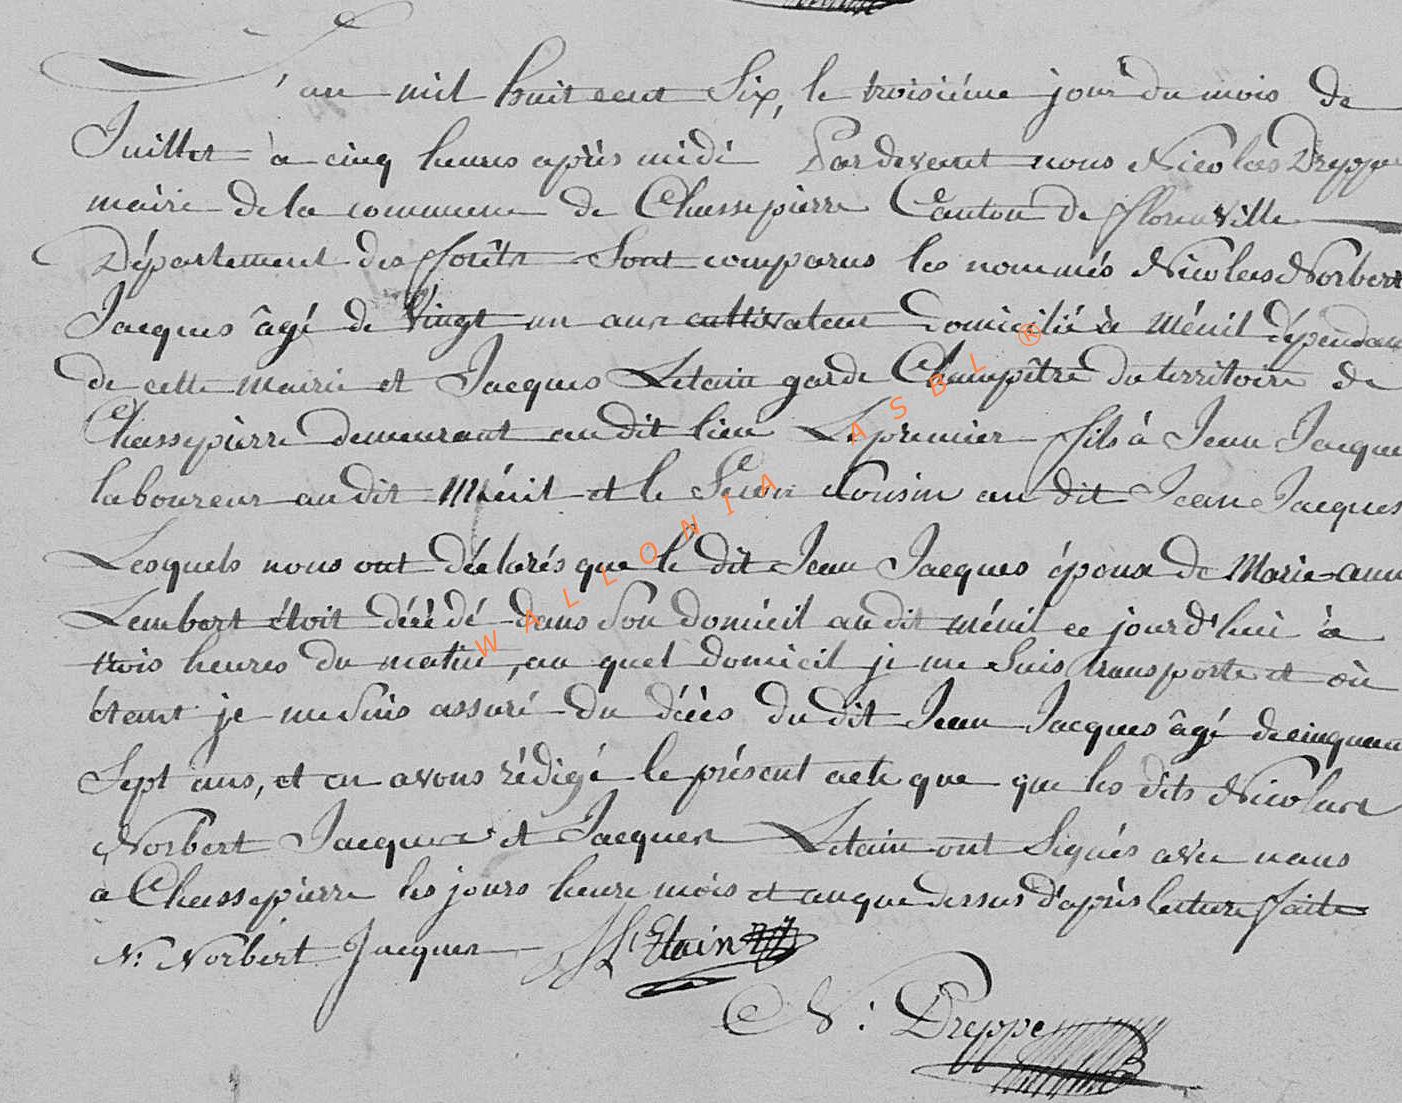 L'an mil huit cent Six, le troisiéme jour du mois de
Juillet à cinq heures après midi Pardevant nous Nicolas Dreppe
maire de la commune de Chassepierre Canton de florenville
Département des forêts Sont comparus les nommés Nicolas Norbert
Jacques âgé de vingt un ans cultivateur domicilié à Ménil dépendant
de cette mairie et Jacques Letain garde Champêtre du territoire de
Chassepierre demeurant au dit lieu Le premier fils à Jean Jacques
laboureur au dit Ménil et le Secon Cousin au dit Jean Jacques
Lesquels nous ont déclarés que le dit Jean Jacques époux de Marie anne
Lembert étoit décédé dans Son domicil au dit ménil ce jourd'hui à
trois heures du matin, au quel domicil je me Suis transporte et où
étant je me Suis assuré du décès du dit Jean Jacques âgé de cinquante
Sept ans, et en avons rédigé le présent acte que que les dits Nicolas
Norbert Jacques et Jacques Letain ont Signés avec nous
a Chassepierre les jours heure mois et an que dessus d'après lecture faite
N: Norbert Jacques J LEtain
N: Dreppe
WALLONIA ASBL ®